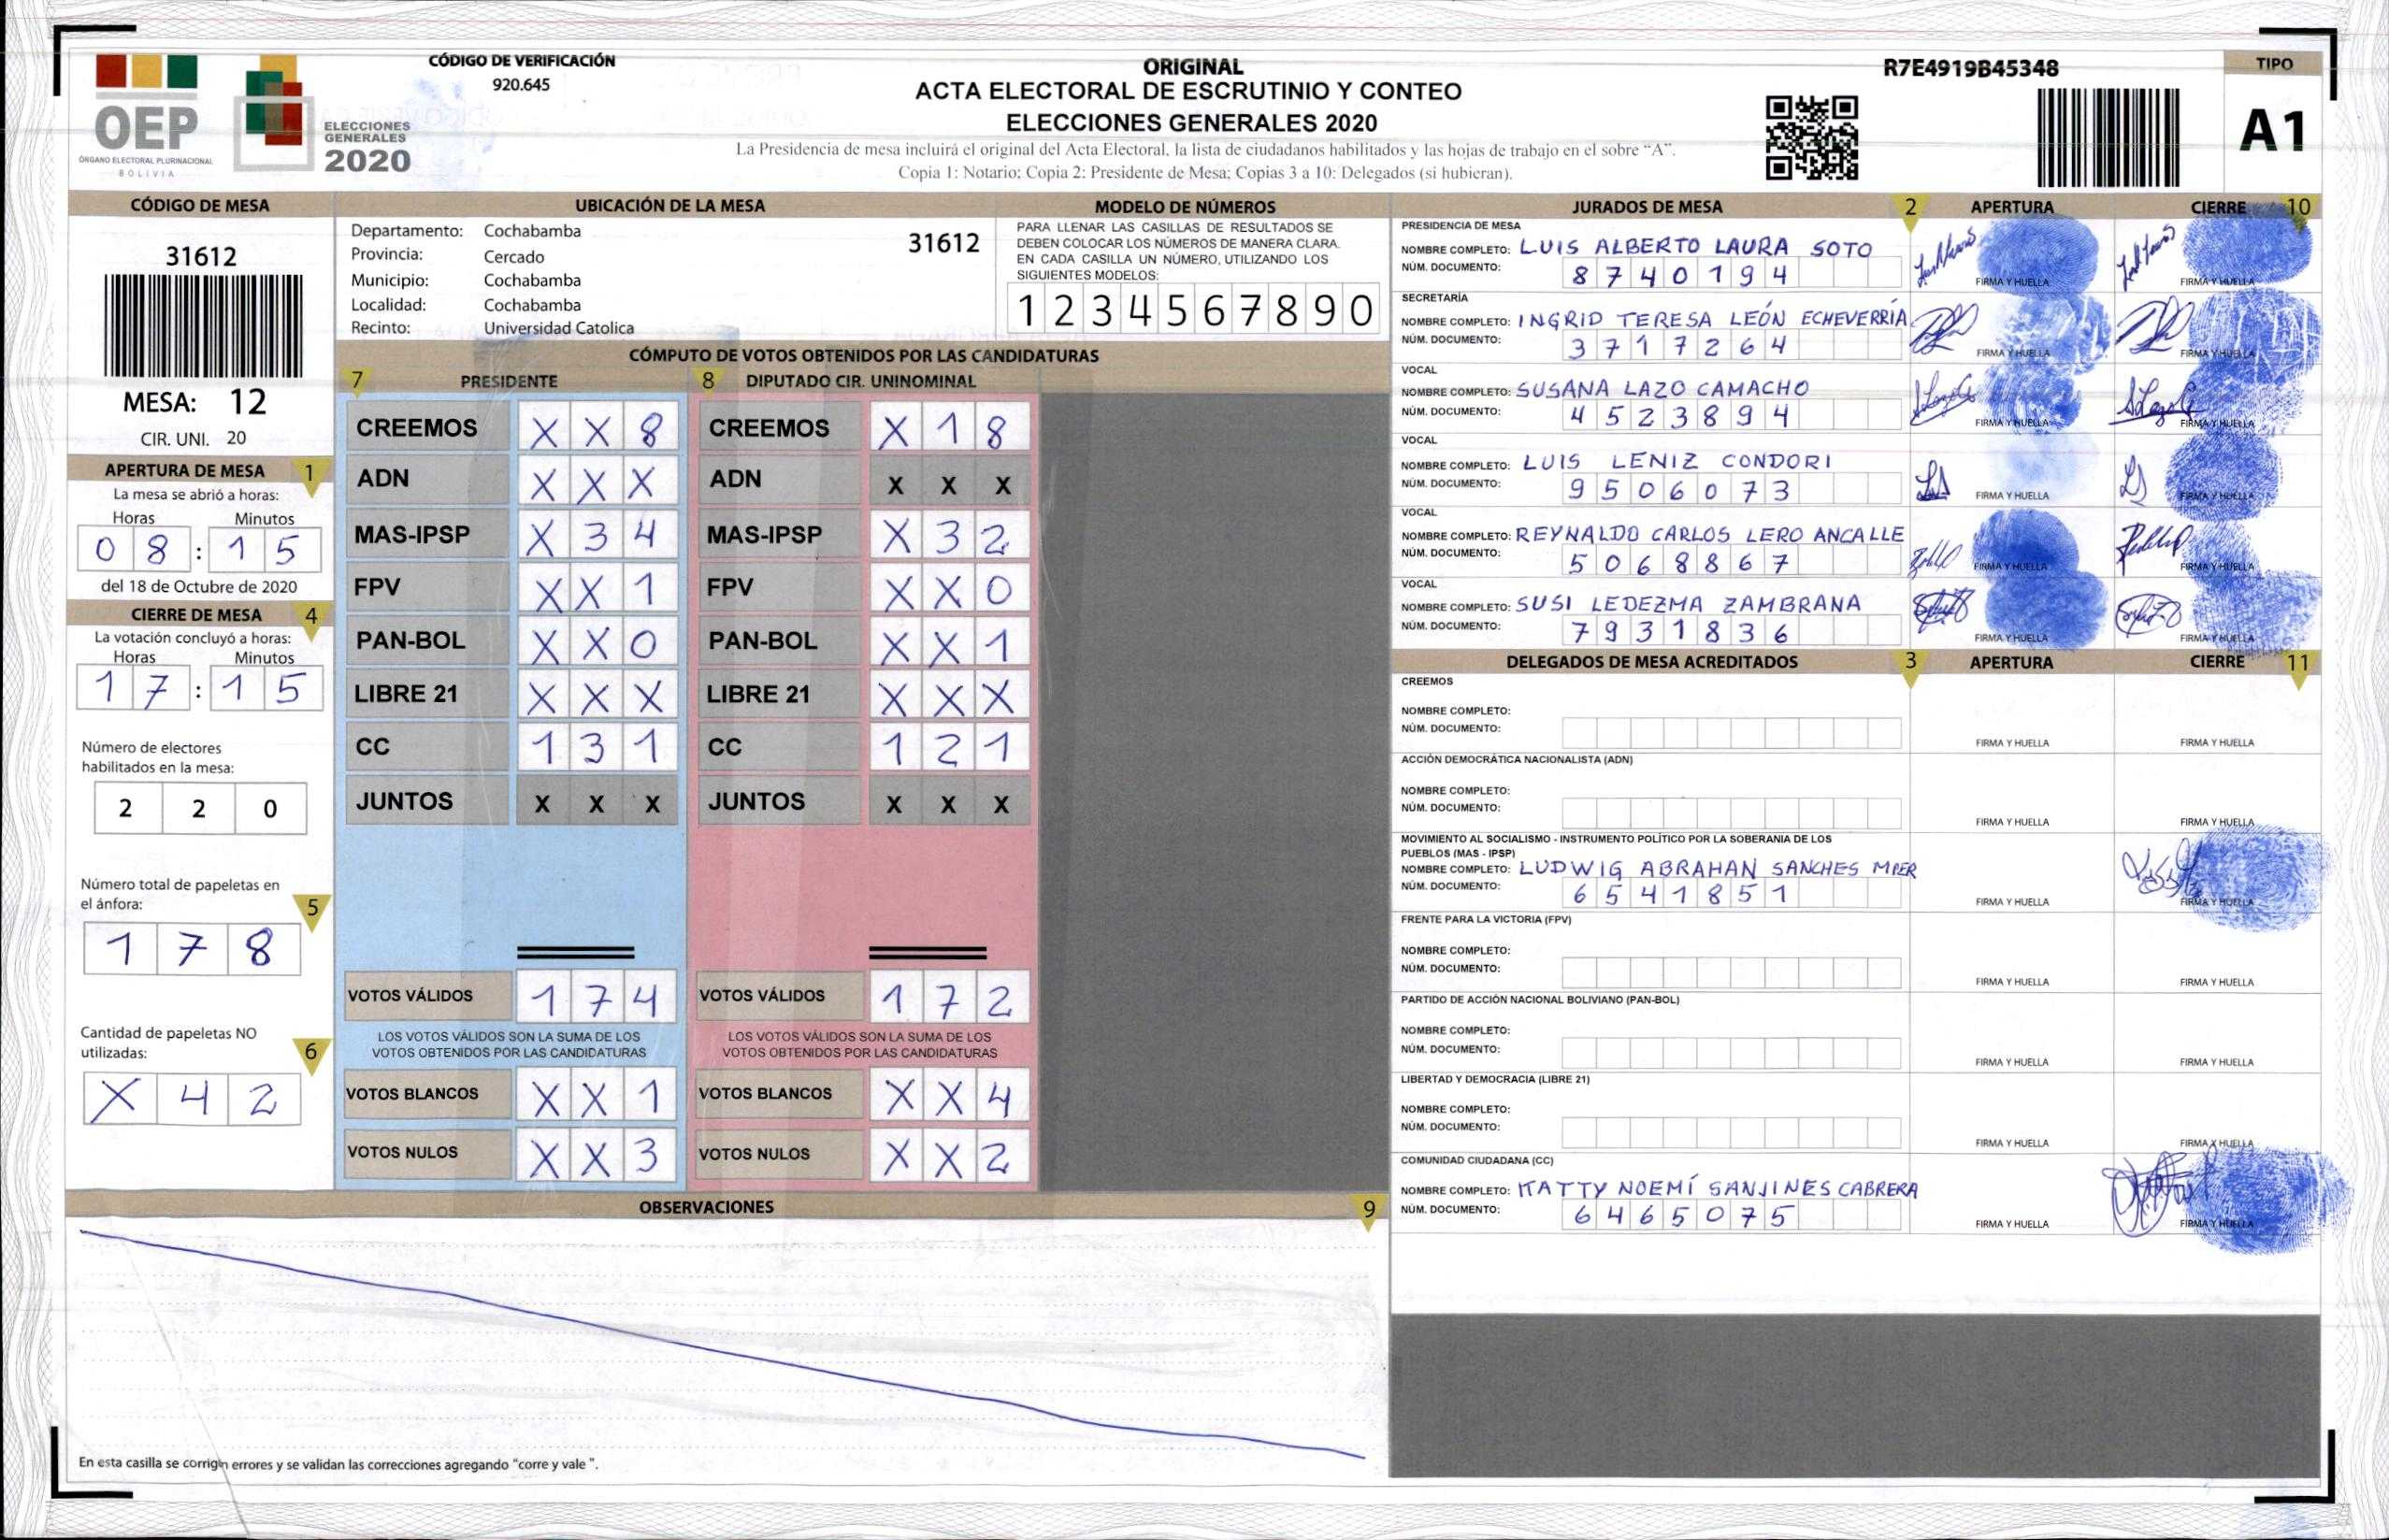 CÓDIGO DE VERIFICACIÓN
920.645
OEP
ÓRGANO ELECTORAL PLURINACIONAL
BOLIVIA
ELECCIONES
GENERALES
2020
ORIGINAL
ACTA ELECTORAL DE ESCRUTINIO Y CONTEO
ELECCIONES GENERALES 2020
La Presidencia de mesa incluirá el original del Acta Electoral, la lista de ciudadanos habilitados y las hojas de trabajo en el sobre “A”.
Copia 1: Notario; Copia 2: Presidente de Mesa; Copias 3 a 10: Delegados (si hubieran).
R7E4919B45348
TIPO
A1
CÓDIGO DE MESA
31612
MESA: 12
CIR. UNI. 20
APERTURA DE MESA 1
La mesa se abrió a horas:
Horas Minutos
0 8 : 1 5
del 18 de Octubre de 2020
CIERRE DE MESA 4
La votación concluyó a horas:
Horas Minutos
1 7 : 1 5
Número de electores
habilitados en la mesa:
2 2 0
Número total de papeletas en
el ánfora: 5
1 7 8
Cantidad de papeletas NO
utilizadas: 6
X 4 2
UBICACIÓN DE LA MESA
Departamento: Cochabamba
Provincia: Cercado
Municipio: Cochabamba
Localidad: Cochabamba
Recinto: Universidad Catolica
31612
MODELO DE NÚMEROS
PARA LLENAR LAS CASILLAS DE RESULTADOS SE
DEBEN COLOCAR LOS NÚMEROS DE MANERA CLARA.
EN CADA CASILLA UN NÚMERO, UTILIZANDO LOS
SIGUIENTES MODELOS:
1 2 3 4 5 6 7 8 9 0
CÓMPUTO DE VOTOS OBTENIDOS POR LAS CANDIDATURAS
7 PRESIDENTE 8 DIPUTADO CIR. UNINOMINAL
CREEMOS X X 8 CREEMOS X 1 8
ADN X X X ADN X X X
MAS-IPSP X 3 4 MAS-IPSP X 3 2
FPV X X 1 FPV X X 0
PAN-BOL X X 0 PAN-BOL X X 1
LIBRE 21 X X X LIBRE 21 X X X
CC 1 3 1 CC 1 2 1
JUNTOS X X X JUNTOS X X X
VOTOS VÁLIDOS 1 7 4 VOTOS VÁLIDOS 1 7 2
LOS VOTOS VÁLIDOS SON LA SUMA DE LOS LOS VOTOS VÁLIDOS SON LA SUMA DE LOS
VOTOS OBTENIDOS POR LAS CANDIDATURAS VOTOS OBTENIDOS POR LAS CANDIDATURAS
VOTOS BLANCOS X X 1 VOTOS BLANCOS X X 4
VOTOS NULOS X X 3 VOTOS NULOS X X 2
OBSERVACIONES 9
En esta casilla se corrigen errores y se validan las correcciones agregando "corre y vale ".
JURADOS DE MESA 2 APERTURA CIERRE 10
PRESIDENCIA DE MESA
NOMBRE COMPLETO: LUIS ALBERTO LAURA SOTO
NÚM. DOCUMENTO: 8 7 4 0 1 9 4
FIRMA Y HUELLA FIRMA Y HUELLA
SECRETARÍA
NOMBRE COMPLETO: INGRID TERESA LEÓN ECHEVERRÍA
NÚM. DOCUMENTO: 3 7 1 7 2 6 4
FIRMA Y HUELLA FIRMA Y HUELLA
VOCAL
NOMBRE COMPLETO: SUSANA LAZO CAMACHO
NÚM. DOCUMENTO: 4 5 2 3 8 9 4
FIRMA Y HUELLA FIRMA Y HUELLA
VOCAL
NOMBRE COMPLETO: LUIS LENIZ CONDORI
NÚM. DOCUMENTO: 9 5 0 6 0 7 3
FIRMA Y HUELLA FIRMA Y HUELLA
VOCAL
NOMBRE COMPLETO: REYNALDO CARLOS LERO ANCALLE
NÚM. DOCUMENTO: 5 0 6 8 8 6 7
FIRMA Y HUELLA FIRMA Y HUELLA
VOCAL
NOMBRE COMPLETO: SUSI LEDEZMA ZAMBRANA
NÚM. DOCUMENTO: 7 9 3 1 8 3 6
FIRMA Y HUELLA FIRMA Y HUELLA
DELEGADOS DE MESA ACREDITADOS 3 APERTURA CIERRE 11
CREEMOS
NOMBRE COMPLETO:
NÚM. DOCUMENTO:
FIRMA Y HUELLA FIRMA Y HUELLA
ACCIÓN DEMOCRÁTICA NACIONALISTA (ADN)
NOMBRE COMPLETO:
NÚM. DOCUMENTO:
FIRMA Y HUELLA FIRMA Y HUELLA
MOVIMIENTO AL SOCIALISMO - INSTRUMENTO POLÍTICO POR LA SOBERANIA DE LOS
PUEBLOS (MAS - IPSP)
NOMBRE COMPLETO: LUDWIG ABRAHAN SANCHES
NÚM. DOCUMENTO: 6 5 4 1 8 5 1
FIRMA Y HUELLA FIRMA Y HUELLA
FRENTE PARA LA VICTORIA (FPV)
NOMBRE COMPLETO:
NÚM. DOCUMENTO:
FIRMA Y HUELLA FIRMA Y HUELLA
PARTIDO DE ACCIÓN NACIONAL BOLIVIANO (PAN-BOL)
NOMBRE COMPLETO:
NÚM. DOCUMENTO:
FIRMA Y HUELLA FIRMA Y HUELLA
LIBERTAD Y DEMOCRACIA (LIBRE 21)
NOMBRE COMPLETO:
NÚM. DOCUMENTO:
FIRMA Y HUELLA FIRMA Y HUELLA
COMUNIDAD CIUDADANA (CC)
NOMBRE COMPLETO: KATTY NOEMÍ SANJINES CABRERA
NÚM. DOCUMENTO: 6 4 6 5 0 7 5
FIRMA Y HUELLA FIRMA Y HUELLA